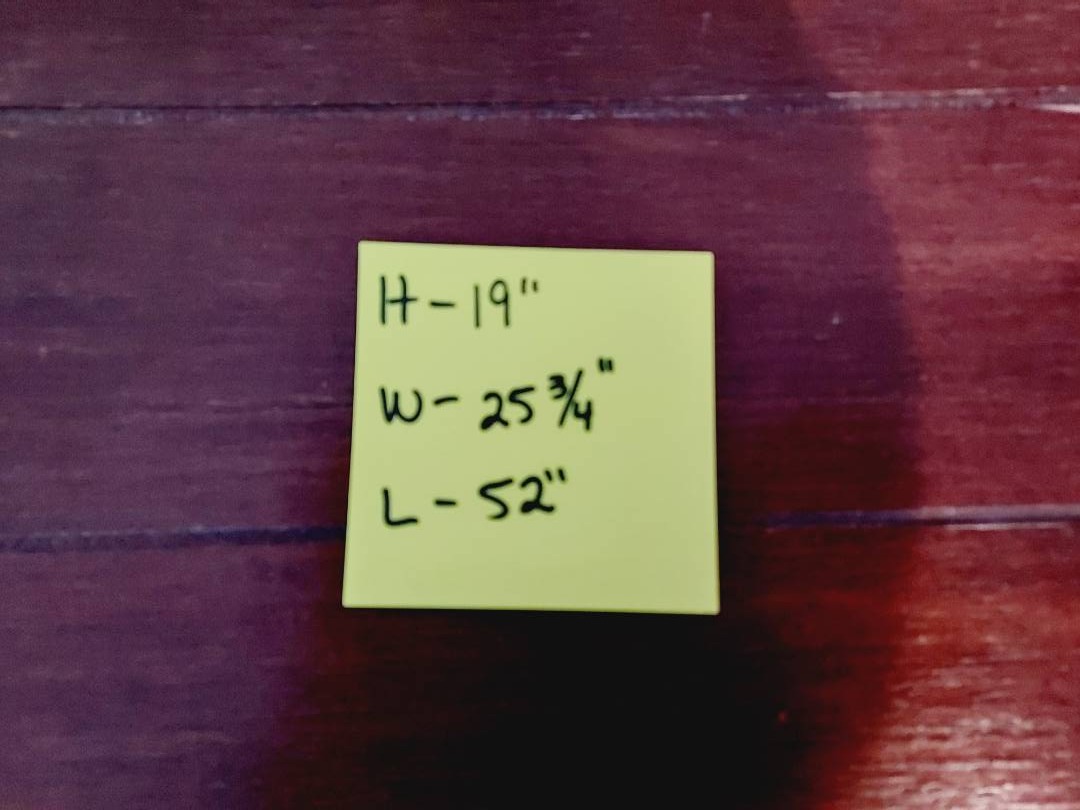 H - 19"
W - 25 3/4"
L - 52"